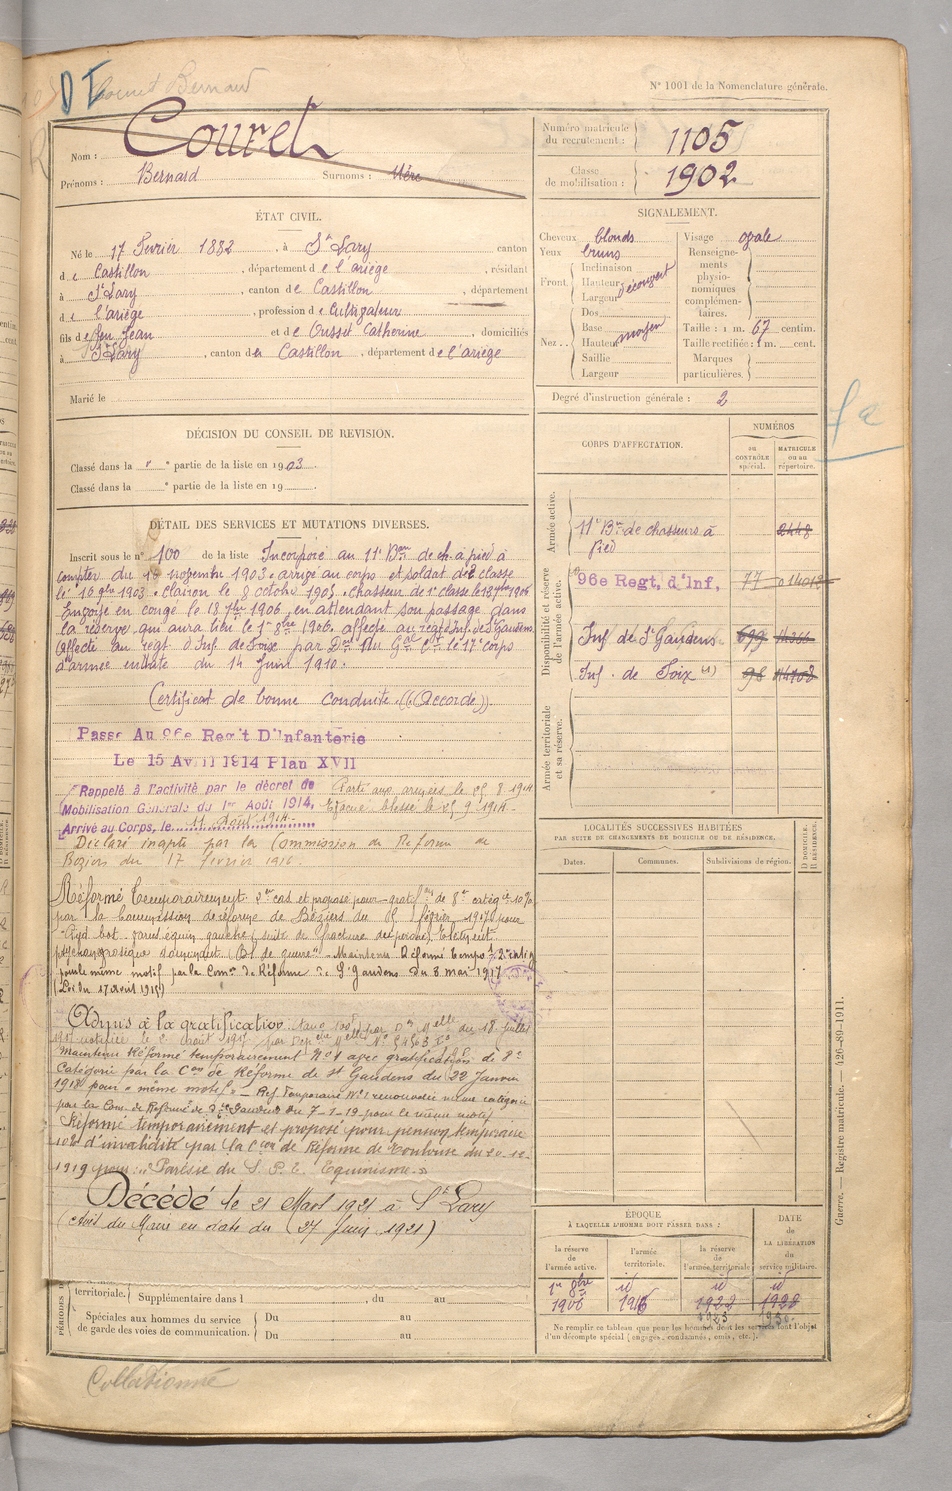 Couret Bernard
N° 1001 de la Nomenclature générale.
Nom : Couret
Prénoms : Bernard Surnoms :
Numéro matricule du recrutement : 1105
Classe de mobilisation : 1902
ÉTAT CIVIL.
Né le 17 Fevrier 1882, à St Lary canton
de Castillon, département de l'ariège, résidant
à St Lary, canton de Castillon, département
de l'ariège, profession de cultivateur
fils de feu Jean et de Ousset Catherine, domiciliés
à St Lary, canton de Castillon, département de l'ariège
Marié le
SIGNALEMENT.
Cheveux blonds
Yeux bruns
Front. Inclinaison
Hauteur découvert
Largeur
Nez.. Dos
Base moyen
Hauteur
Saillie
Largeur
Visage ovale
Renseignements physionomiques complémentaires.
Taille : 1 m. 67 centim.
Taille rectifiée : 1 m. cent.
Marques particulières.
Degré d'instruction générale : 2
DÉCISION DU CONSEIL DE REVISION.
Classé dans la " e partie de la liste en 1903.
Classé dans la e partie de la liste en 19
DÉTAIL DES SERVICES ET MUTATIONS DIVERSES.
Inscrit sous le n° 100 de la liste Incorporé au 11e Bon de ch. à pied à
compter du 16 novembre 1903. arrivé au corps et soldat de 2e classe
le 16 9bre 1903. clairon le 8 octobre 1905. chasseur de 1e classe le 18 7bre 1906
Envoyé en congé le 18 7bre 1906, en attendant son passage dans
la réserve qui aura lieu le 1er 8bre 1906. affecté au régt d'Inf. de St Gaudens
Affecté au regt d'Inf. de Foix par Don du Gal Ct le 17e corps
d'armée en date du 14 Juin 1910.
Certificat de bonne conduite "Accordé".
Passé Au 96e Regit D'Infanterie
Le 15 Avril 1914 Plan XVII
Rappelé à l'activité par le décret de
Mobilisation Générale du 1er Août 1914,
Arrivé au Corps, le 11 Août 1914
Parti aux armées le 25 8 1914
Evacué blessé le 25 9 1914
Déclaré inapte par la Commission de Réforme de
Béziers du 17 février 1916.
Réformé Temporairement 2e cas et proposé pour gratifon de 8e catégie 10%
par la Commission de réforme de Béziers du février 1917 pour
Pied bot varus équin gauche (suite de fracture du péroné)
"Bl de guerre" Maintenu Réformé tempo
pour le même motif par la Comon de Réforme de St Gaudens du 8 mai 1917
(Loi du 17 avril 1915)
Admis à la gratification
Maintenu Réformé temporairement N°1 avec gratification de 8e
Catégorie par la Con de Réforme de St Gaudens du 22 Janvier
1918 pour "même motif" - Réf Temporaire N°1 renouvelée même catégorie
par la Com. de Réforme de St Gaudens du 7-1-19 pour le même motif
Réformé temporairement et proposé pour pension temporaire
10% d'invalidité par la Con de Réforme de Toulouse du 20-12-
1919 pour : "Parésie du S.P.E. Equinisme"
Décédé le 21 Mars 1921 à St Lary
(Avis du Maire en date du (27 Juin 1921)
CORPS D'AFFECTATION.
NUMÉROS
DU CONTRÔLE spécial.
MATRICULE ou au répertoire.
Armée active.
11e Bon de chasseurs à pied 2448
Disponibilité et réserve de l'armée active.
96e Regt. d'Inf. 77
Inf de St Gaudens 699
Inf. de Foix 98
Armée territoriale et sa réserve.
LOCALITÉS SUCCESSIVES HABITÉES
PAR SUITE DE CHANGEMENTS DE DOMICILE OU DE RÉSIDENCE.
Dates. Communes. Subdivisions de région. D. DOMICILE. R. RÉSIDENCE.
ÉPOQUE
À LAQUELLE L'HOMME DOIT PASSER DANS :
la réserve de l'armée active. l'armée territoriale. la réserve de l'armée territoriale
DATE de LA LIBÉRATION du service militaire.
1er 8bre 1906 id 1916 id 1922 id 1928
Ne remplir ce tableau que pour les hommes dont les services font l'objet
d'un décompte spécial (engagés, condamnés, omis, etc.).
territoriale. Supplémentaire dans l , du au
Spéciales aux hommes du service de garde des voies de communication.
Du au
Du au
Guerre. — Registre matricule. — 426-89-1911.
Collationné